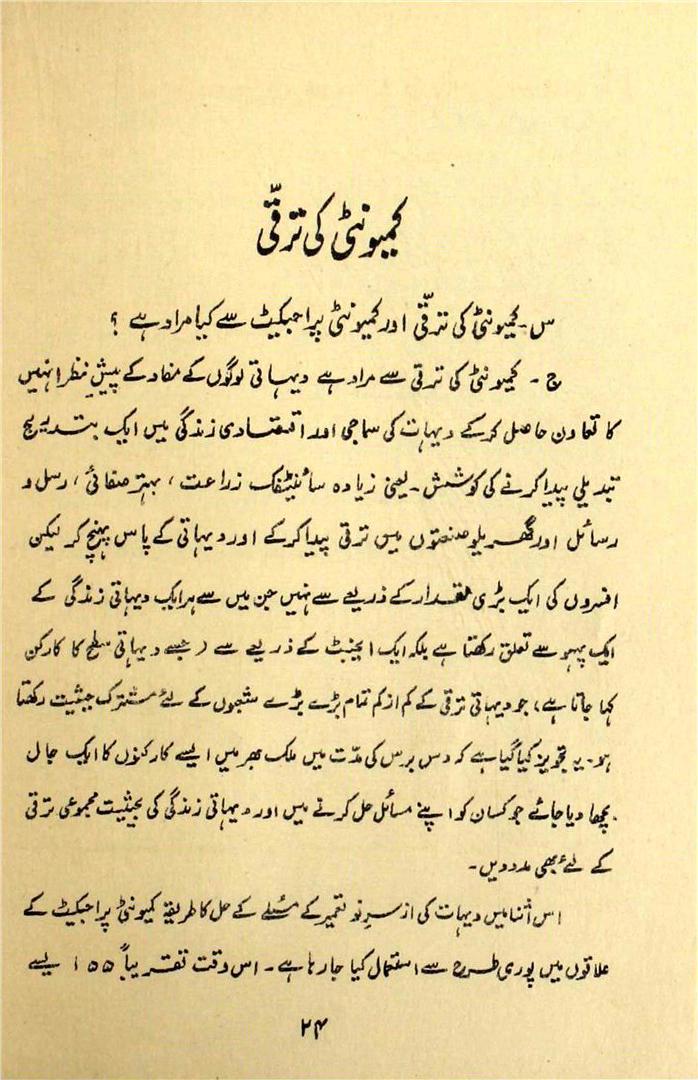 کمیونٹی کی ترقّی
س۔ کمیونٹی کی ترقّی اور کمیونٹی پراجیکٹ سے کیا مراد ہے ؟
ج۔ کمیونٹی کی ترقی سے مراد ہے دیہاتی لوگوں کے مفاد کے پیشِ نظر انہیں
کا تعاون حاصل کرکے دیہات کی سماجی اور اقتصادی زندگی میں ایک بتدریج
تبدیلی پیدا کرنے کی کوشش۔ یعنی زیادہ سائنٹفک زراعت، بہتر صفائی، رسل و
رسائل اور گھریلو صنعتوں میں ترقی پیدا کرکے اور دیہاتی کے پاس پہنچ کر لیکن
افسروں کی ایک بڑی مقدار کے ذریعے سے نہیں جن میں سے ہر ایک دیہاتی زندگی کے
ایک پہلو سے تعلق رکھتا ہے بلکہ ایک ایجنٹ کے ذریعے سے (جسے دیہاتی سطح کا کارکن
کہا جاتا ہے، جو دیہاتی ترقی کے کم از کم تمام بڑے بڑے شعبوں کے لئے مشترک حیثیت رکھتا
ہو۔ یہ تجویز کیا گیا ہے کہ دس برس کی مدّت میں ملک بھر میں ایسے کارکنوں کا ایک جال
بچھا دیا جائے جو کسان کو اپنے مسائل حل کرنے میں اور دیہاتی زندگی کی بحیثیت مجموعی ترقی
کے لئے بھی مدد دیں۔
اس اثنا میں دیہات کی از سرِ نو تعمیر کے مسئلے کے حل کا طریقہ کمیونٹی پراجیکٹ کے
علاقوں میں پوری طرح سے استعمال کیا جا رہا ہے۔ اس وقت تقریباً ۵۵ ایسے
۲۴